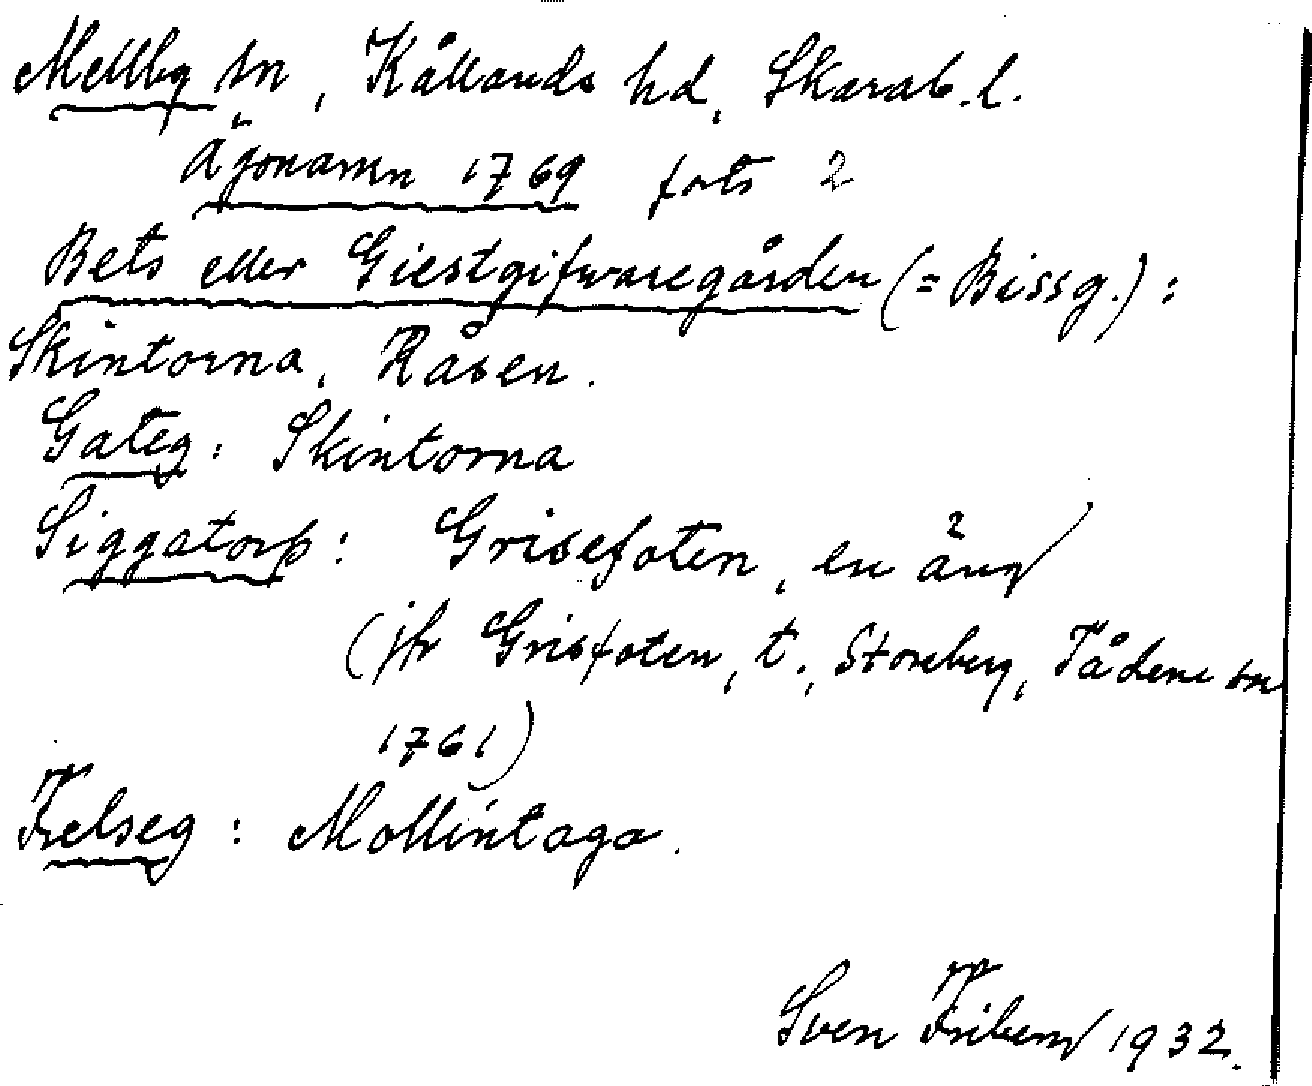 Mellby sn, Kållands hd, Skarab. l.
Ägonamn 1769 forts 2
Bets eller Giestgifwaregården (= Bissg.):
Skintorna, Råsen.
Gateg: Skintorna
Siggatorp: Grisefoten, en äng
(jfr Grisfoten, t., Storeberg, Tådene sn
1761)
Frelseg: Mollintaga.
Sven Friberg 1932.